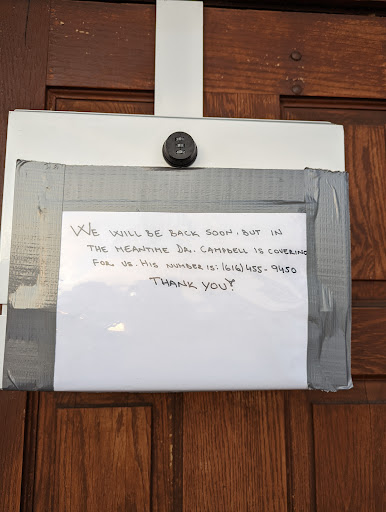 WE WILL BE BACK SOON. BUT IN
THE MEANTIME DR. CAMPBELL IS COVERING
FOR US. HIS NUMBER IS: (616) 455-9450
THANK YOU!